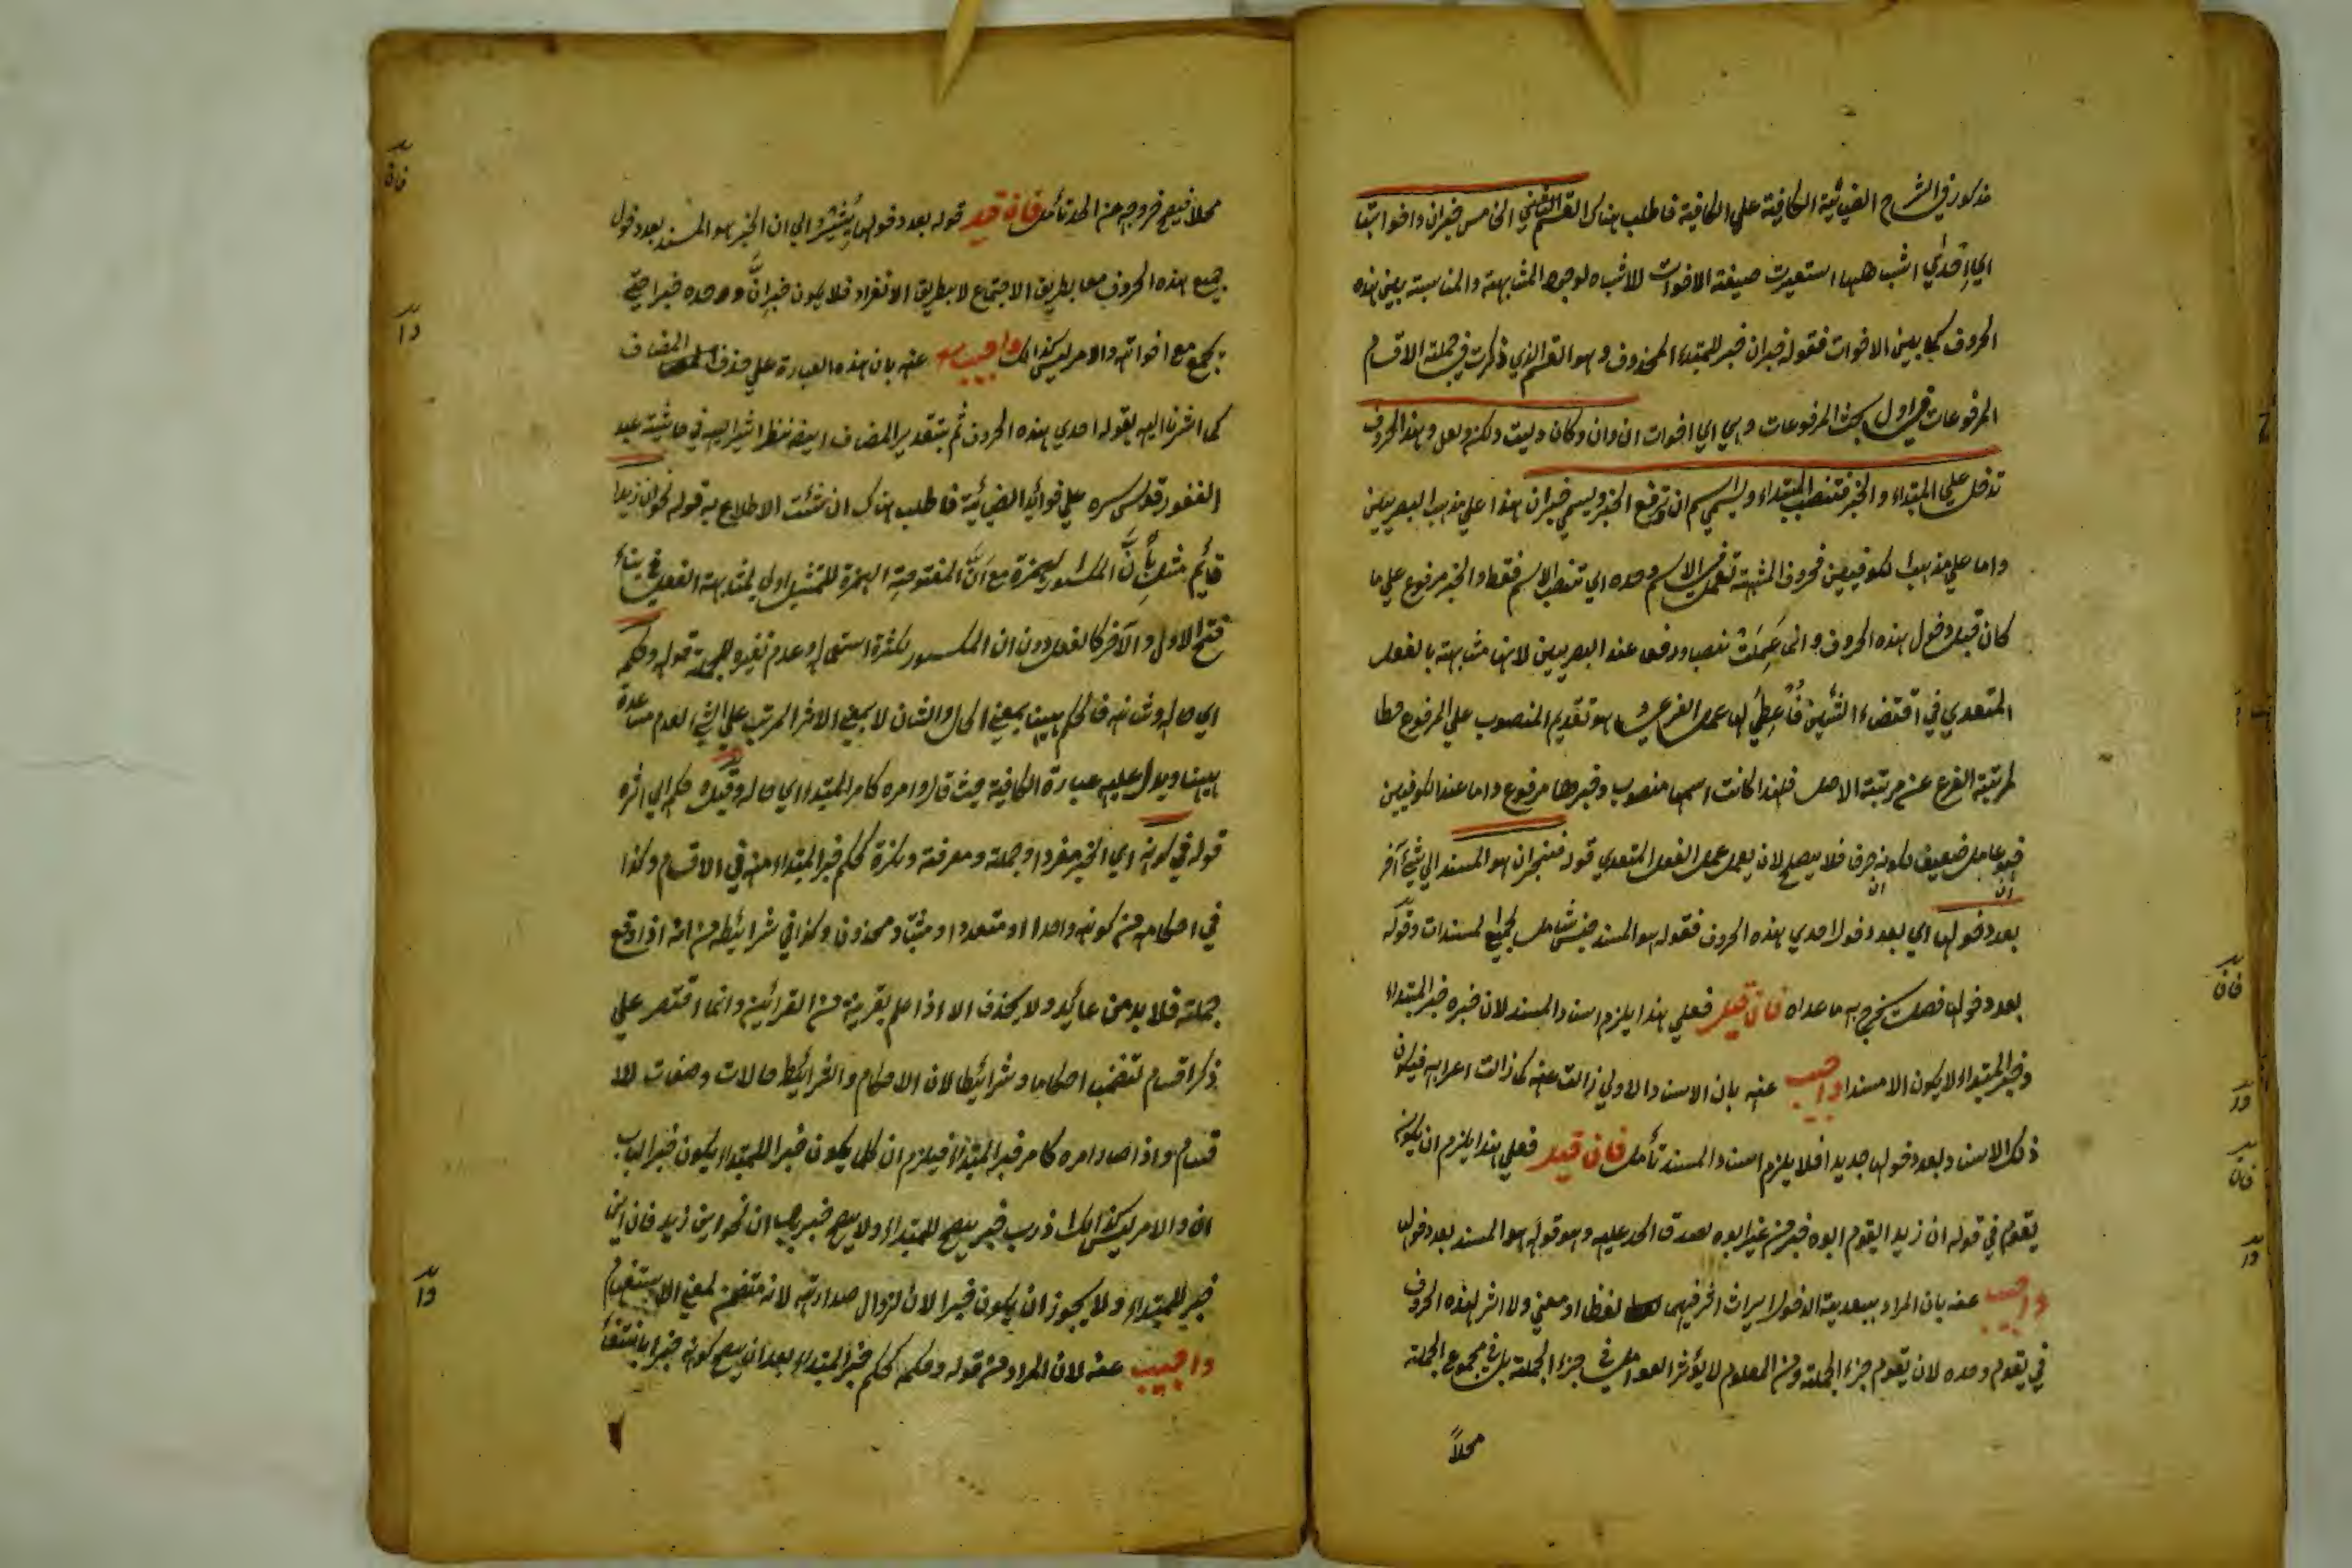 مذكور في الشرح الغياثية الكافية على الكافية فاطلب هناك القسم الخامس خبر ان واخواتها
اي احدي اشباهها استعيرت صيغة الاخوات للاشباه لوجود المشابهة والمناسبة بين هذه
الحروف كما بين الاخوات فقوله خبر ان خبر للمبتداء المحذوف وهو القسم الذي ذكرت في جملة الاقسام
المرفوعات في اول بحث المرفوعات وهي اي اخوات ان وان وكان وليت ولكن ولعل وهذه الحروف
تدخل على المبتداء والخبر فتنصب المبتداء ويسمي اسم ان وترفع الخبر ويسمي خبر ان هذا على مذهب البصريين
واما على مذهب الكوفيين فحروف المشبهة تعمل في الاسم وحده اي تنصب الاسم فقط والخبر مرفوع على ما
كان قبل دخول هذه الحروف وانما عملت نصبا ورفعا عند البصريين لانها مشابهة بالفعل
المتعدي في اقتضاء الشيئين فاعطي لها عمل الفرعي وهو تقديم المنصوب على المرفوع حطا
لمرتبة الفرع عن مرتبة الاصل فلهذا كانت اسمها منصوب وخبرها مرفوع واما عند الكوفيين
فهو عامل ضعيف لكونه حرفا فلا يصلح لان يعمل عمل الفعل المتعدي قوله فخبر ان هو المسند الى شيء آخر
بعد دخولها اي بعد دخول احدي هذه الحروف فقوله هو المسند جنس شامل لجميع المسندات وقوله
بعد دخولها فصل يخرج به ما عداه فان قيل فعلى هذا يلزم اسناد المسند لان خبره خبر المبتداء
وخبر المبتداء لا يكون الا مسندا واجيب عنه بان الاسناد الاولي زالت عنه كما زالت اعرابه فيكون
ذلك الاسناد بعد دخولها جديدا فلا يلزم اسناد المسند تأمل فان قيل فعلى هذا يلزم ان يكون
يقوم في قوله ان زيد القوم ابوه خبر من غير ابوه لصدق الحد عليه وهو قوله هو المسند بعد دخولها
واجيب عنه بان المراد ببعدية الدخول ايراث اثر فيها لفظا او معني ولا اثر لهذه الحروف
في يقوم وحده لان يقوم جزء الجملة ومن المعلوم لا يؤثر العوامل في جزء الجملة بل في مجموع الجملة
محلاً
محلا فيصح خروجه من الحد تأمل فان قيل قوله بعد دخولها يشير الي ان الخبر هو المسند بعد دخول
جميع هذه الحروف معا بطريق الاجتماع لا بطريق الانفراد فلا يكون خبر انّ وحده خبرا حتى
يجمع مع اخواته والامر ليس كذلك واجيب عنه بان هذه العبارة على حذف المضاف
كما اشرنا اليه بقوله احدي هذه الحروف ثم بتقدير المضاف ايضا نظر اشير اليه في حاشية عبد
الغفور قدس سره على فوائد الضيائية فاطلب هناك ان شئت الاطلاع به قوله نحو ان زيدا
قائم مثل بانّ المكسورة الهمزة مع انّ المفتوحة الهمزة للتمثيل اولي لمشابهة الفعل في بناء
فتح الاول والآخر كالفعل دون ان المكسور لكثرة استعماله وعدم تغيره الجملة قوله وحكمه
اي حاله وشانه فالحكم ههنا بمعني الحال والشان لا بمعني الاثر المرتب على الشيء لعدم مساعدة
ههنا ويدل عليه عبارة الكافية حيث قال وامره كامر المبتداء اي حاله وقيل حكمه اي اثره
قوله في كونه اي الخبر مفردا وجملة ومعرفة ونكرة كحكم خبر المبتداء منه في الاقسام وكذا
في احكامه من كونه واحدا او متعددا ومثبتا ومحذوفا وكذا في شرائطه من انه اذا وقع
جملة فلا بد من عائد ولا يحذف الا اذا علم بقرينة من القرائن وانما اقتصر على
ذكر اقسام لتضمنه احكاما وشرائطا لان الاحكام والشرائط حالات وصفات للا
قسام واذا صار امره كامر خبر المبتداء فيلزم ان كل يكون خبرا للمبتداء يكون خبرا لباب
ان والامر ليس كذلك اذ رب خبر يصح للمبتداء ولا يصح خبر باب ان نحو اين زيد فان اين
خبر للمبتداء ولا يجوز ان يكون خبرا لان لزوال صدارته لانه متضمن لمعني الاستفهام
واجيب عنه لان المراد من قوله وحكمه كحكم خبر المبتداء بعد ان يصح كونه خبرا بانتفاء